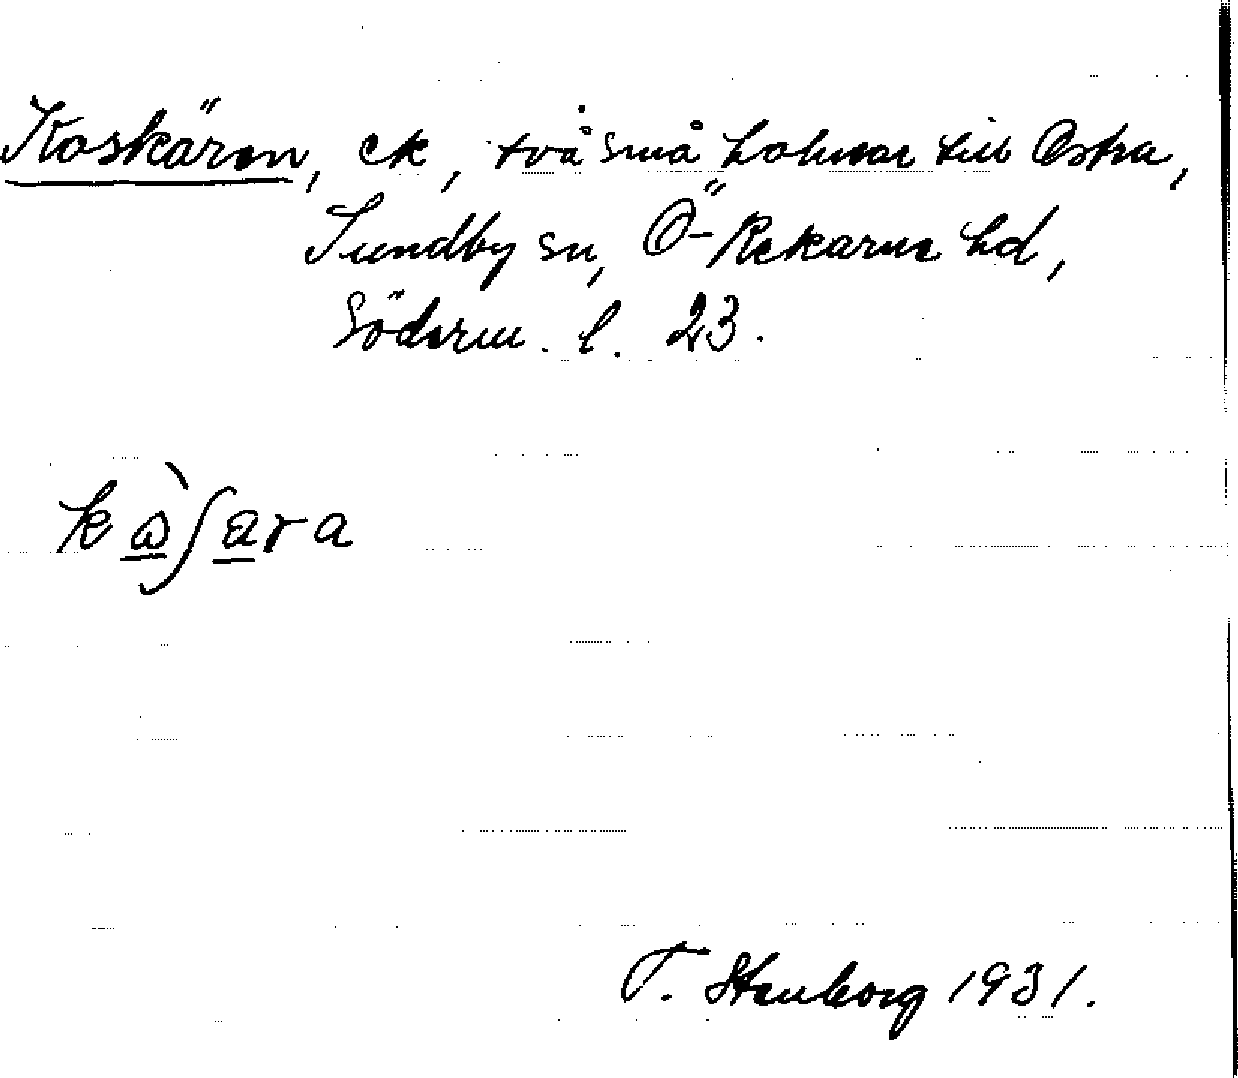 Koskären, ek, två små holmar till Östra,
Sundby sn, Ö-Rekarne hd,
Söderm. l. 23.
T. Stenborg 1931.